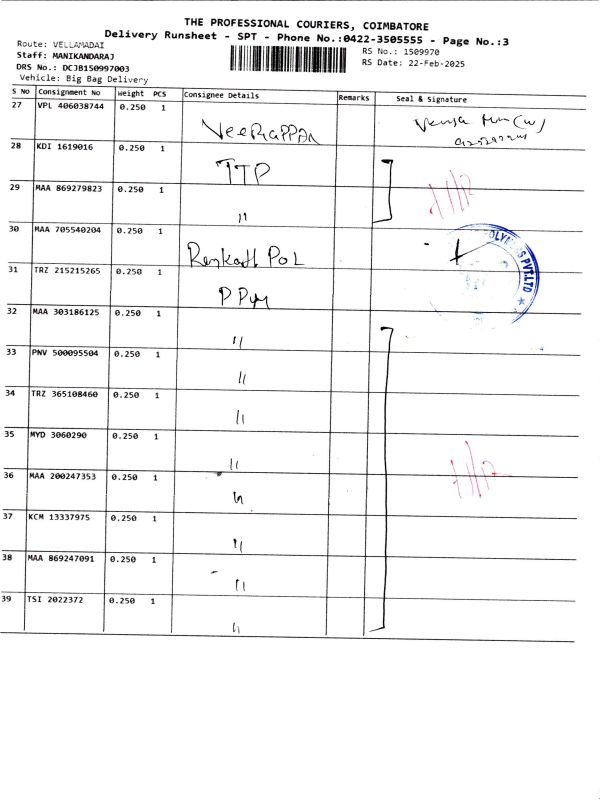 THE PROFESSIONAL COURIERS, COIMBATORE
Delivery Runsheet - SPT - Phone No.:0422-3505555 - Page No.:3
Route: VELLAMADAI
Staff: MANIKANDARAJ
DRS No.: DCJB150997003
Vehicle: Big Bag Delivery
RS No.: 1509970
RS Date: 22-Feb-2025
S No Consignment No Weight PCS Consignee Details Remarks Seal & Signature
27 VPL 406038744 0.250 1
VeeRappan
28 KDI 1619016 0.250 1
TTP
29 MAA 869279823 0.250 1
"
30 MAA 705540204 0.250 1
POL
OLYMERS PVT.LTD
31 TRZ 215215265 0.250 1
32 MAA 303186125 0.250 1
"
33 PNV 500095504 0.250 1
"
34 TRZ 365108460 0.250 1
"
35 MYD 3060290 0.250 1
"
36 MAA 200247353 0.250 1
"
37 KCM 13337975 0.250 1
"
38 MAA 869247091 0.250 1
"
39 TSI 2022372 0.250 1
"